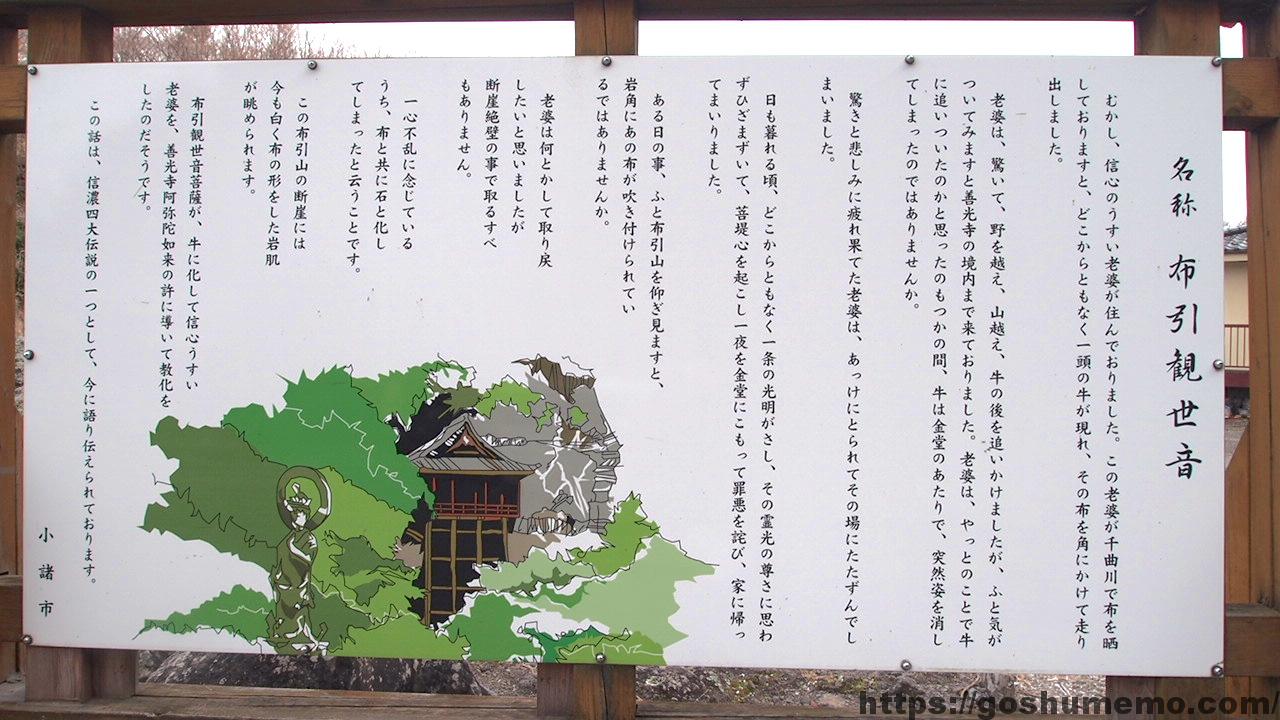 名称 布引観世音
むかし、信心のうすい老婆が住んでおりました。この老婆が千曲川で布を晒
しておりますと、どこからともなく一頭の牛が現れ、その布を角にかけて走り
出しました。
老婆は、驚いて、野を越え、山越え、牛の後を追いかけましたが、ふと気が
ついてみますと善光寺の境内まで来ておりました。老婆は、やっとのことで牛
に追いついたのかと思ったのもつかの間、牛は金堂のあたりで、突然姿を消し
てしまったのではありませんか。
驚きと悲しみに疲れ果てた老婆は、あっけにとられてその場にたたずんでし
まいました。
日も暮れる頃、どこからともなく一条の光明がさし、その霊光の尊さに思わ
ずひざまずいて、菩堤心を起こし一夜を金堂にこもって罪悪を詫び、家に帰っ
てまいりました。
ある日の事、ふと布引山を仰ぎ見ますと、
岩角にあの布が吹き付けられてい
るではありませんか。
老婆は何とかして取り戻
したいと思いましたが
断崖絶壁の事で取るすべ
もありません。
一心不乱に念じている
うち、布と共に石と化し
てしまったと云うことです。
この布引山の断崖には
今も白く布の形をした岩肌
が眺められます。
布引観世音菩薩が、牛に化して信心うすい
老婆を、善光寺阿弥陀如来の許に導いて教化を
したのだそうです。
この話は、信濃四大伝説の一つとして、今に語り伝えられております。
小諸市
https://goshumemo.com/